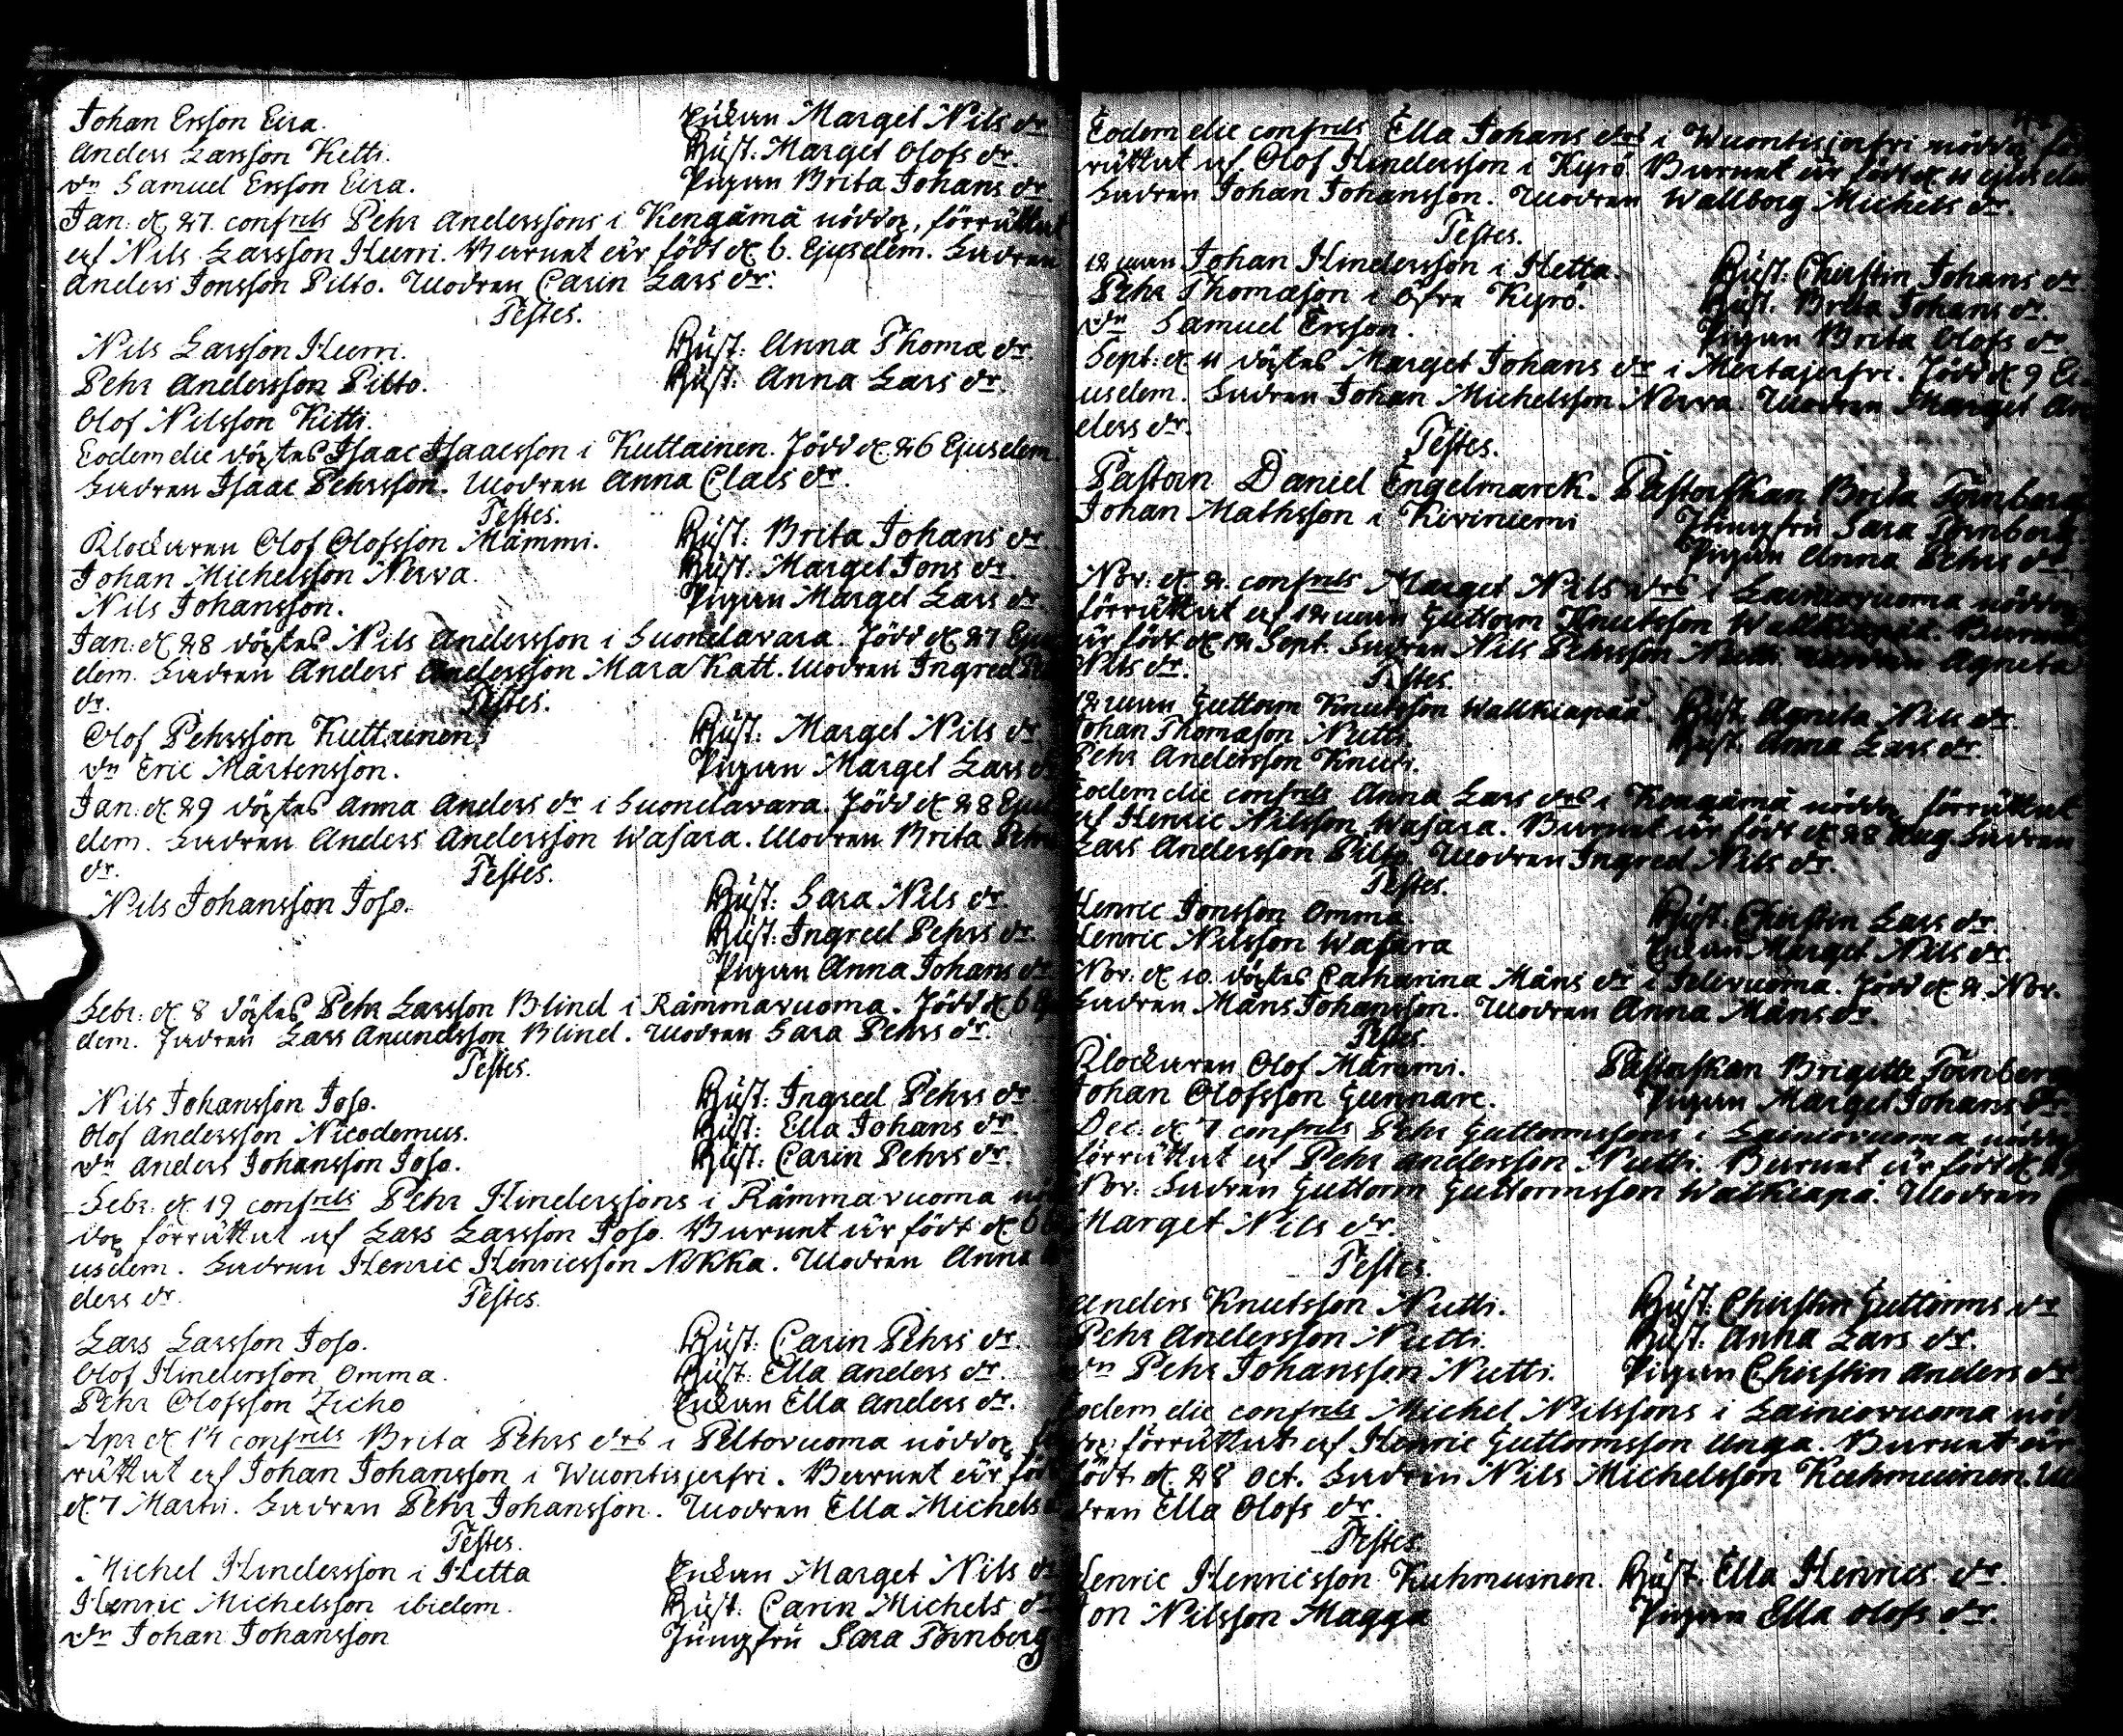 Johan Ersson Eira. Enkan Marget Nils dr
Anders Larsson Kitti. Hust: Marget Olofs dr.
dn Samuel Ersson Eira. Pigan Brita Johans dr
Jan: d. 27. confirels Pehr Anderssons i Kengämä nöddop, förrättat
af Nils Larsson Hurri. Barnet är födt d. 6. Ejusdem. Fadren
Anders Jonsson Pilto. Modren Carin Lars dr.
Testes.
Nils Larsson Hurri. Hust: Anna Thomæ dr.
Pehr Andersson Pilto. Hust: Anna Lars dr.
Olof Nilsson Kitti.
Eodem die döptes Isaac Isaacsson i Kuttainen. Född d. 26 Ejusdem.
Fadren Isaac Pehrsson. Modren Anna Claes dr.
Testes.
Klockaren Olof Olofsson Mämmi. Hust: Brita Johans dr.
Johan Michelsson Nerva. Hust: Marget Jons dr.
Nils Johansson. Pigan Marget Lars dr.
Jan: d. 28 döptes Nils Andersson i Suondavara. Född d. 27 Ejus
dem. Fadren Anders Andersson Mara Katt. Modren Ingred
dr. Testes.
Olof Pehrsson Kuttainen. Hust: Marget Nils dr
dn Eric Mårtensson. Pigan Marget Lars dr
Jan: d. 29 döptes Anna Anders dr i Suondavara. Född d. 28 Ejus
dem. Fadren Anders Andersson Wasara. Modren Brita Pehrs
dr. Testes.
Nils Johansson Joso. Hust: Sara Nils dr.
Hust: Ingred Pehrs dr.
Pigan Anna Johans dr
Febr: d. 8 döptes Pehr Larsson Blind i Rämmavuoma. Född d. 6 Ejus
dem. Fadren Lars Anundsson Blind. Modren Sara Pehrs dr.
Testes.
Nils Johansson Joso. Hust: Ingred Pehrs dr
Olof Andersson Nicodemus. Hust: Ella Johans dr.
dn Anders Johansson Joso. Hust: Carin Pehrs dr.
Febr: d. 19 confirels Pehr Hinderssons i Rämmavuoma nöd
dop förrättat af Lars Larsson Joso. Barnet är födt d. 6 Ej
usdem. Fadren Henric Henricsson Nikka. Modren Anna An
ders dr. Testes.
Lars Larsson Joso. Hust: Carin Pehrs dr.
Olof Hindersson Omma. Hust: Ella Anders dr.
Pehr Olofsson Zicho Enkan Ella Anders dr.
Apr. d. 14 confirels Brita Pehrs drs i Peltovuoma nöddop för
rättat af Johan Johansson i Wuontisjerfri. Barnet är födt
d. 7 Martii. Fadren Pehr Johansson. Modren Ella Michels
Testes.
Michel Hindersson i Hetta Enkan Marget Nils dr
Henric Michelsson ibidem. Hust: Carin Michels dr
dn Johan Johansson Jungfru Sara Törnberg
Eodem die confirels Ella Johans drs i Wuontisjerfri nöddop för
rättat af Olof Hindersson i Kyrö. Barnet är födt d. 11 ejusdem
Fadren Johan Johansson. Modren Wallborg Michels dr.
Testes.
12 man Johan Hindersson i Hetta. Hust: Chirstin Johans dr.
Pehr Thomæson i öfra Kyrö. Hust: Brita Johans dr.
dn Samuel Ersson. Pigan Brita Olofs dr
Sept: d. 11 döptes Marget Johans dr i Mertajerfri. Född d. 9 Ej
usdem. Fadren Johan Michelsson Nerva. Modren Marget An
ders dr. Testes.
Pastorn Daniel Engelmarck. Pastorskan Brita Törnberg
Johan Mathsson i Kiviniemi Jungfru Sara Törnberg
Pigan Anna Pehrs dr
Nov: d. 2. confirels Marget Nils drs i Lainiovuoma nöddop
förrättat af 12 man Guttorm Knutsson Walkiapää. Barnet
är födt d. 12 Sept. Fadren Nils Pehrsson Nutti. Modren Agneta
Nils dr. Testes.
12 man Guttorm Knutsson Walkiapää. Hust: Agneta Nils dr.
Johan Thomæson Nutti. Hust: Anna Lars dr.
Pehr Andersson Knuti.
Eodem die confirels Anna Lars drs i Kengämä nöddop förrättat
af Henric Nilsson Wasara. Barnet är födt d. 28 Aug. Fadren
Lars Andersson Pilto. Modren Ingred Nils dr.
Testes.
Henric Jonsson Omma Hust: Chirstin Lars dr.
Henric Nilsson Wasara Enkan Marget Nils dr.
Nov: d. 10. döptes Catharina Måns dr i Idivuoma. Född d. 2. Nov.
Fadren Måns Johansson. Modren Anna Måns dr.
Testes.
Klockaren Olof Mämmi. Pastorskan Brigitta Törnberg
Johan Olofsson Gunnare. Pigan Marget Johans dr.
Dec: d. 7 confirels Pehr Guttormssons i Lainiovuoma nöddop
förrättat af Pehr Andersson Nutti. Barnet är födt d. 29
Nov: Fadren Guttorm Guttormsson Walkiapä. Modren
Marget Nils dr.
Testes.
Anders Knutsson Nutti. Hust: Chirstin Guttorms dr
Pehr Andersson Nutti. Hust: Anna Lars dr.
dn Pehr Johansson Nutti. Pigan Chirstin Anders dr
Eodem die confirels Michel Nilssons i Lainiovuoma nöd
dop förrättat af Henric Guttormsson Unga. Barnet är
födt d. 28 Oct. Fadren Nils Michelsson Kuhmuinen. Mo
dren Ella Olofs dr.
Testes
Henric Henricsson Kuhmuinen. Hust: Ella Henrics dr.
Jon Nilsson Magga Pigan Ella Olofs dr.